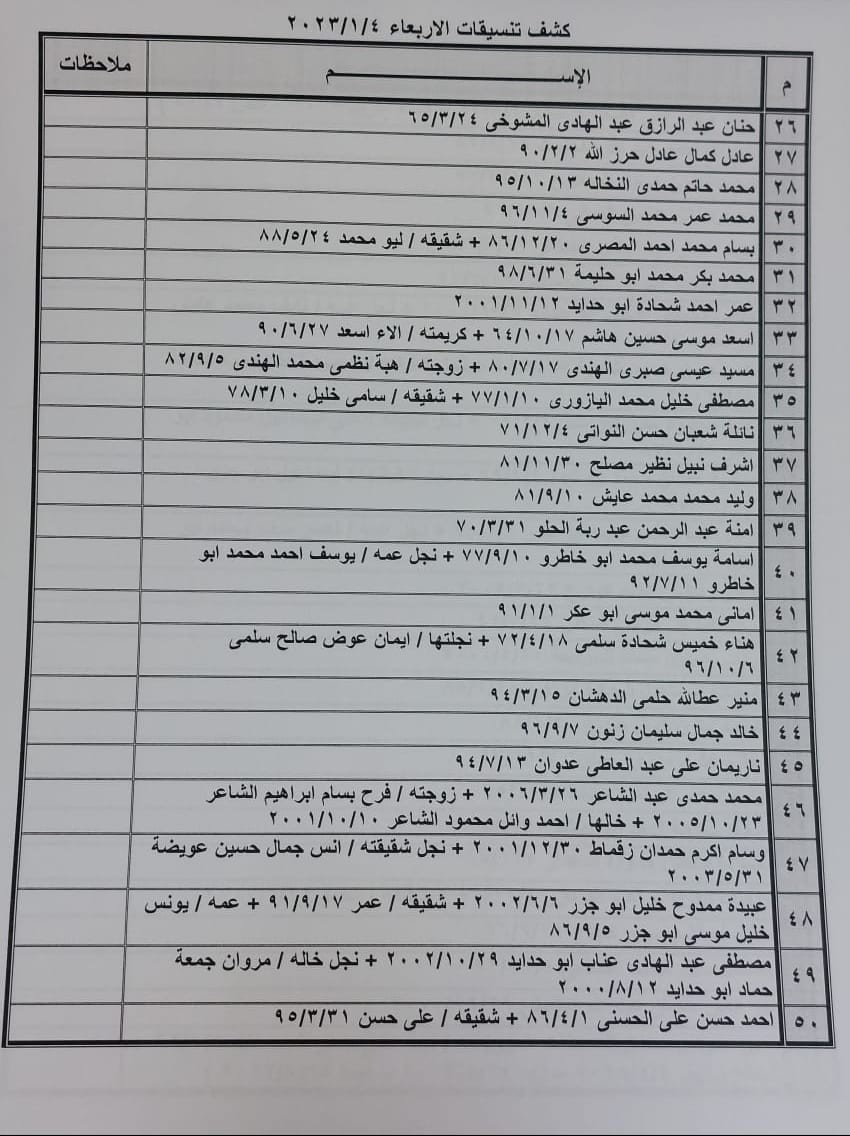 كشف تنسيقات الاربعاء ٢٠٢٣/١/٤
م الإســـــــم ملاحظات
٢٦ حنان عبد الرازق عبد الهادى المشوخى ٦٥/٣/٢٤
٢٧ عادل كمال عادل حرز الله ٩٠/٢/٢
٢٨ محمد حاتم حمدى النخاله ٩٥/١٠/١٣
٢٩ محمد عمر محمد السوسى ٩٦/١١/٤
٣٠ بسام محمد احمد المصرى ٨٦/١٢/٢٠ + شقيقه / ليو محمد ٨٨/٥/٢٤
٣١ محمد بكر محمد ابو حليمة ٩٨/٦/٣١
٣٢ عمر احمد شحادة ابو حدايد ٢٠٠١/١١/١٢
٣٣ اسعد موسى حسين هاشم ٦٤/١٠/١٧ + كريمته / الاء اسعد ٩٠/٦/٢٧
٣٤ مسيد عيسى صبرى الهندى ٨٠/٧/١٧ + زوجته / هبة نظمى محمد الهندى ٨٢/٩/٥
٣٥ مصطفى خليل محمد اليازورى ٧٧/١/١٠ + شقيقه / سامى خليل ٧٨/٣/١٠
٣٦ نائلة شعبان حسن النواتى ٧١/١٢/٤
٣٧ اشرف نبيل نظير مصلح ٨١/١١/٣٠
٣٨ وليد محمد محمد عايش ٨١/٩/١٠
٣٩ امنة عبد الرحمن عبد ربة الحلو ٧٠/٣/٣١
٤٠ اسامة يوسف محمد ابو خاطرو ٧٧/٩/١٠ + نجل عمه / يوسف احمد محمد ابو
خاطرو ٩٢/٧/١١
٤١ امانى محمد موسى ابو عكر ٩١/١/١
٤٢ هناء خميس شحادة سلمى ٧٢/٤/١٨ + نجلتها / ايمان عوض صالح سلمى
٩٦/١٠/٦
٤٣ منير عطالله حلمى الدهشان ٩٤/٣/١٥
٤٤ خالد جمال سليمان زنون ٩٦/٩/٧
٤٥ ناريمان على عبد العاطى عدوان ٩٤/٧/١٣
٤٦ محمد حمدى عبد الشاعر ٢٠٠٦/٣/٢٦ + زوجته / فرح بسام ابراهيم الشاعر
٢٠٠٥/١٠/٢٣ + خالها / احمد وائل محمود الشاعر ٢٠٠١/١٠/١٠
٤٧ وسام اكرم حمدان زقماط ٢٠٠١/١٢/٣٠ + نجل شقيقته / انس جمال حسين عويضة
٢٠٠٣/٥/٣١
٤٨ عبيدة ممدوح خليل ابو جزر ٢٠٠٢/٦/٦ + شقيقه / عمر ٩١/٩/١٧ + عمه / يونس
خليل موسى ابو جزر ٨٦/٩/٥
٤٩ مصطفى عبد الهادى عناب ابو حدايد ٢٠٠٢/١٠/٢٩ + نجل خاله / مروان جمعة
حماد ابو حدايد ٢٠٠٠/٨/١٢
٥٠ احمد حسن على الحسنى ٨٦/٤/١ + شقيقه / على حسن ٩٥/٣/٣١